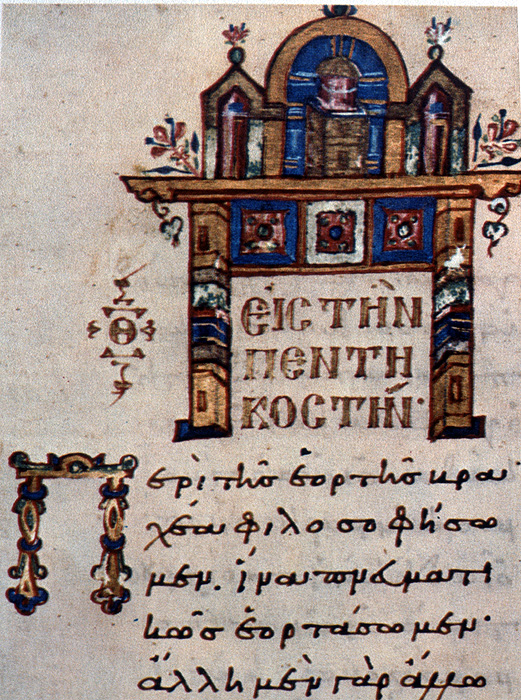 ΕΙΣ ΤΗΝ
ΠΕΝΤΗ
ΚΟΣΤΗΝ·
Θ
Περὶ τῆς ἑορτῆς βρα
χέα φιλοσοφήσω
μεν. ἵνα πνευματι
κῶς ἑορτάσωμεν·
ἄλλη μὲν γὰρ ἄλλω